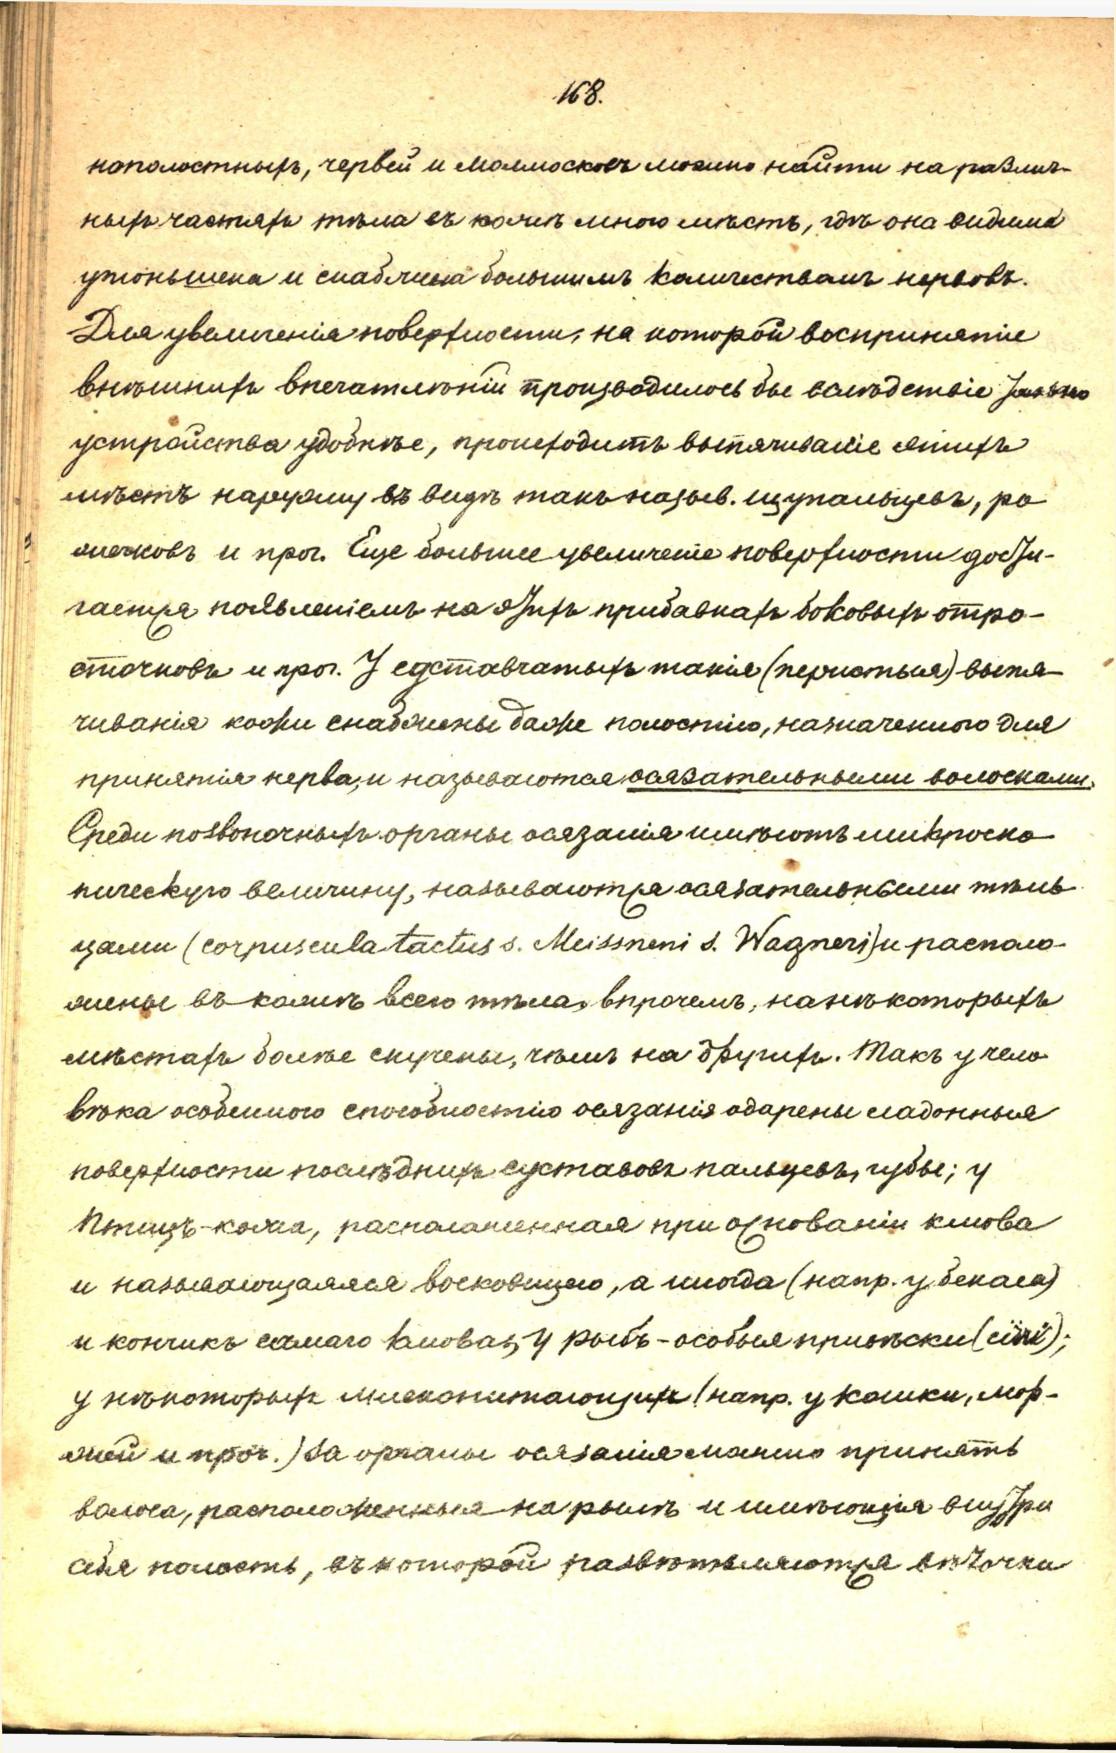 168.
нополостныхъ, червей и моллюсковъ можно найти на различ-
ныхъ частяхъ тѣла въ кожѣ много мѣстъ, гдѣ она видимо
утоньшена и снабжена большимъ количествомъ нервовъ.
Для увеличенія поверхности, на которой воспринятіе
внѣшнихъ впечатлѣній производилось бы вслѣдствіе
устройства удобнѣе, происходитъ выпячиваніе этихъ
мѣстъ наружу въ видѣ такъ назыв. щупальцевъ, ро
жечковъ и проч. Еще большее увеличеніе поверхности дости-
гается появленіемъ на этихъ прибавкахъ боковыхъ отро-
сточковъ и проч. У суставчатыхъ такія (перистыя) выпя-
чиванія кожи снабжены даже полостію, назначенною для
принятія нерва, и называются осязательными волосками.
Среди позвоночныхъ органы осязанія имѣютъ микроско
пическую величину, называются осязательными тѣль
цами (corpuscula tactus s. Meissneri s. Wagneri) и располо-
жены въ кожѣ всего тѣла, впрочемъ, на нѣкоторыхъ
мѣстахъ болѣе скучены, чѣмъ на другихъ. Такъ у чело
вѣка особенною способностію осязанія одарены ладонныя
поверхности послѣднихъ суставовъ пальцевъ, губы; у
Птицъ-кожа, расположенная при основаніи клюва
и называющаяся восковицею, а иногда (напр. у бекаса)
и кончикъ самаго клюва; У рыбъ-особыя привѣски (cirri);
у нѣкоторыхъ млекопитающихъ (напр. у кошки, мор-
жей и проч.) за органы осязанія можно принять
волоса, расположенныя на рылѣ и имѣющія внутри
себя полость, въ которой развѣтвляются вѣточки